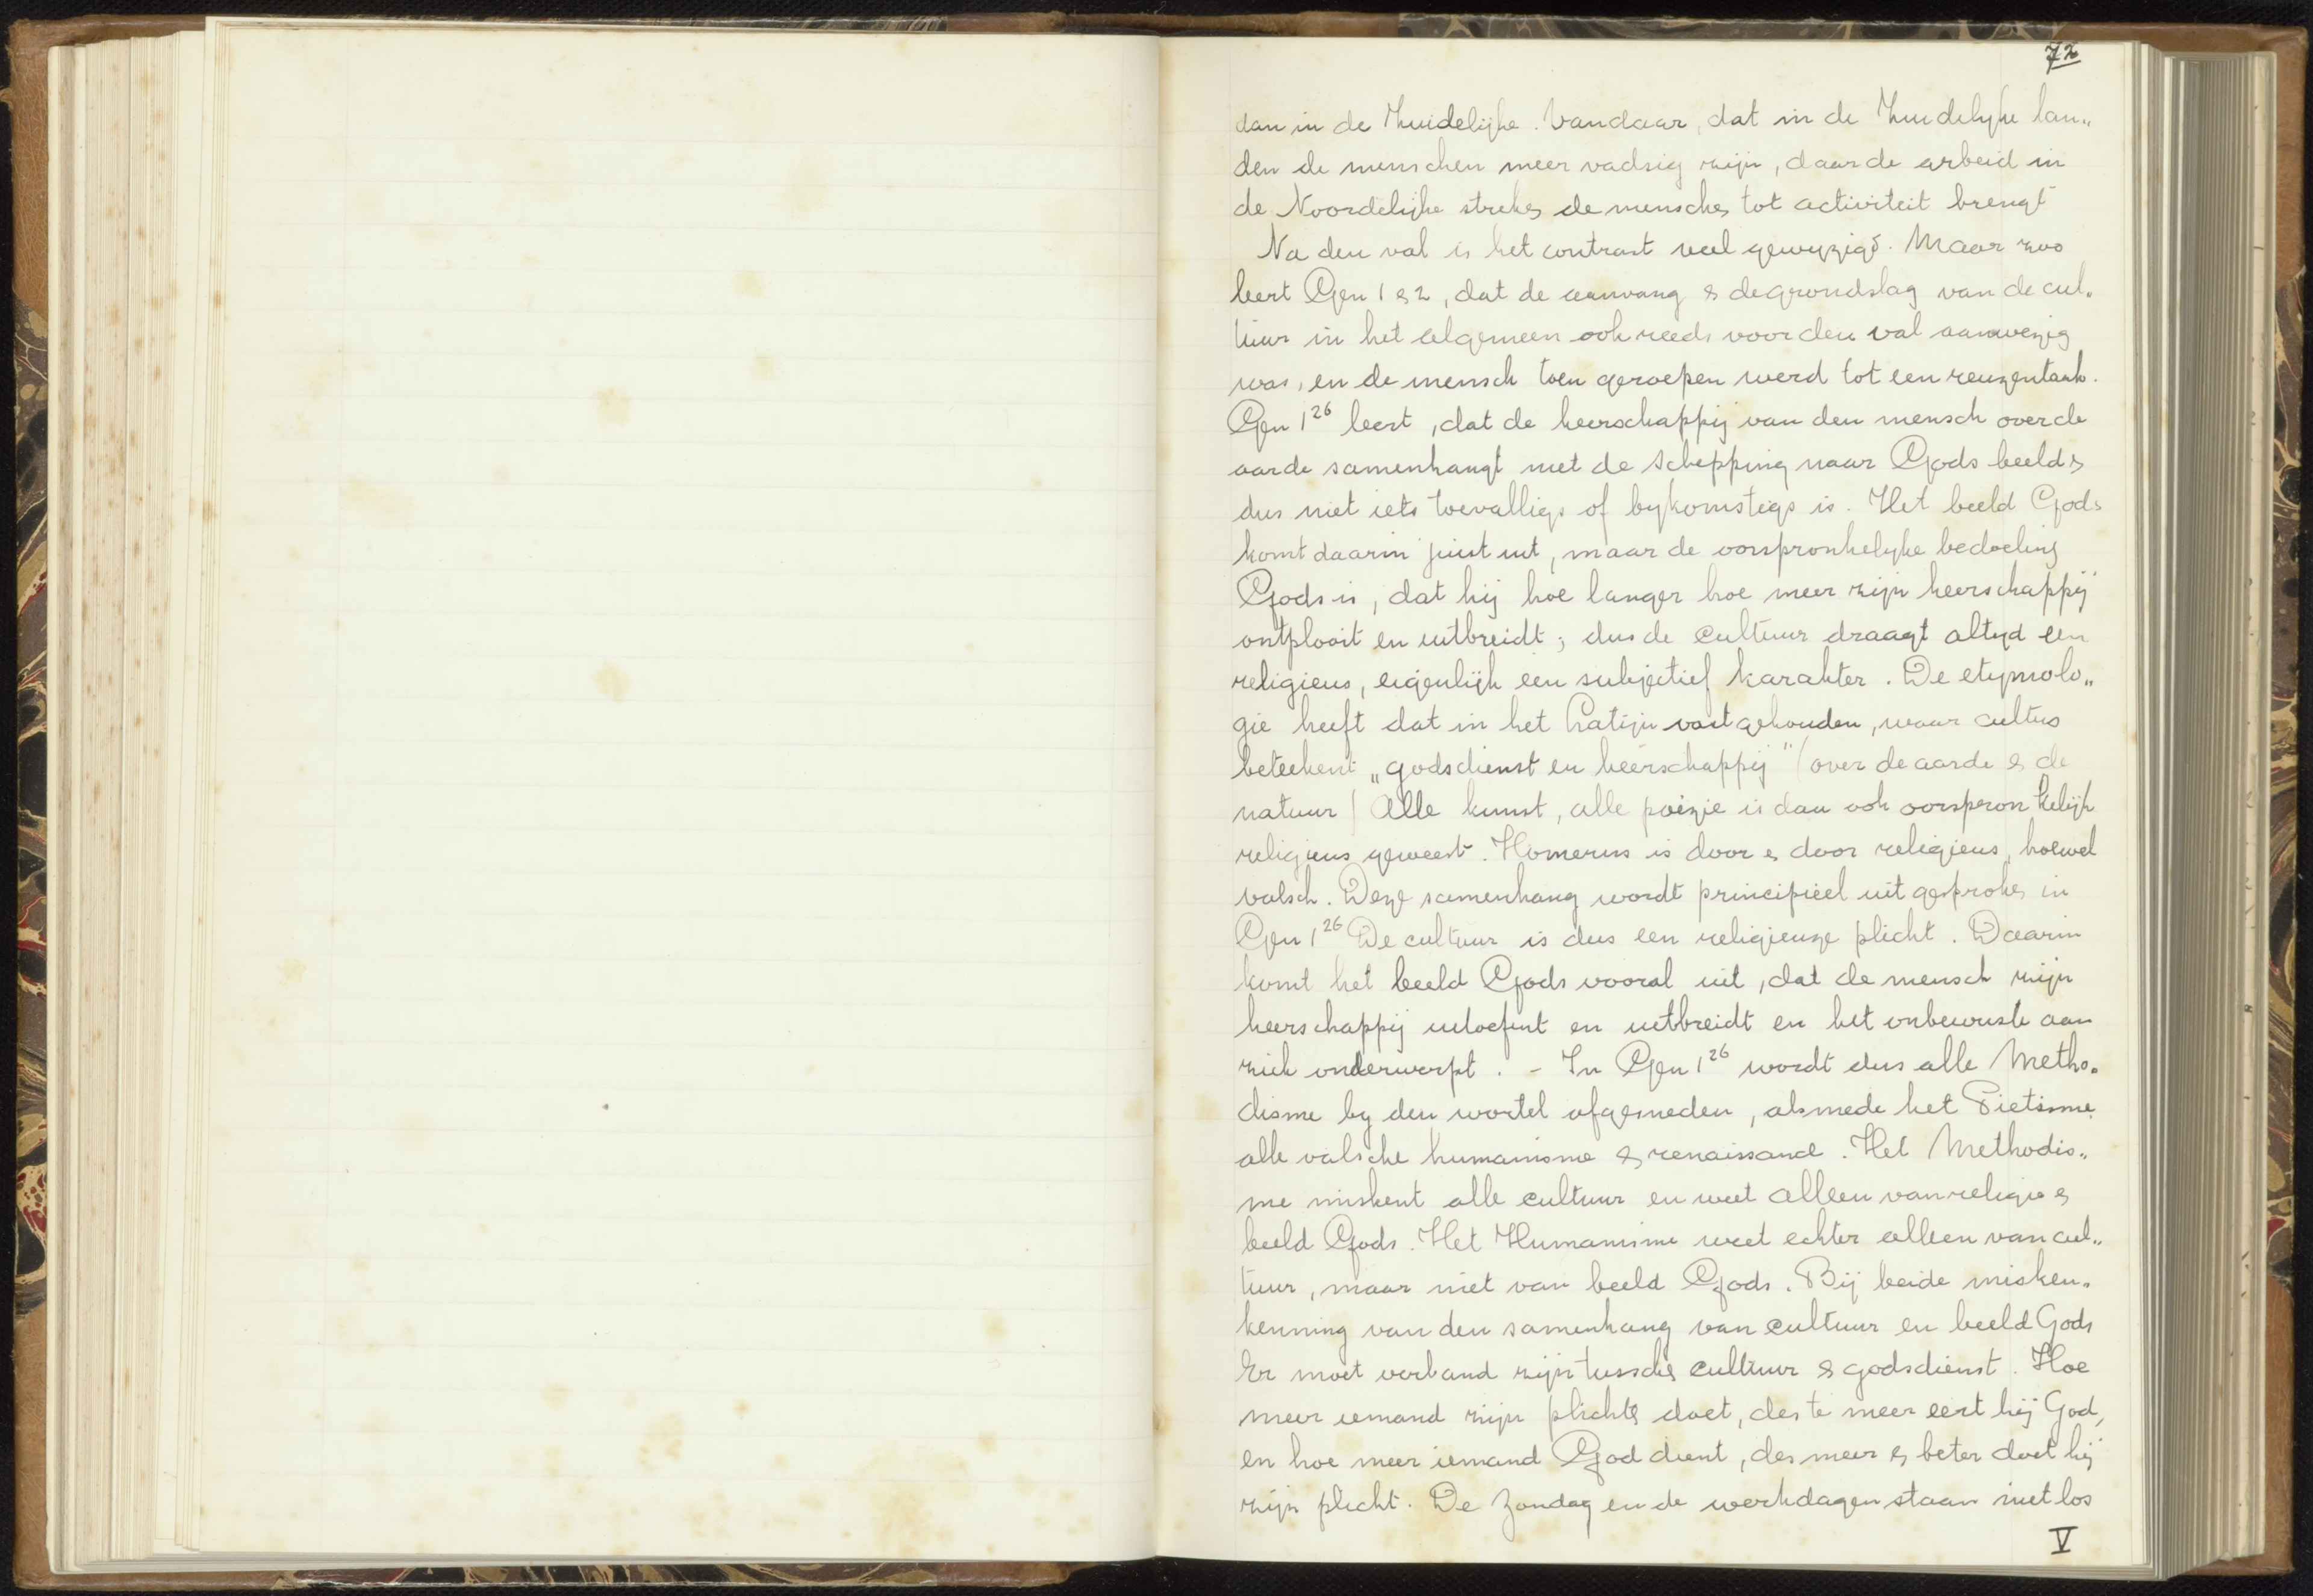 72
dan in de Zuidelijke. Vandaar, dat in de Zuidelyke lan„
den de menschen meer vadsig zijn, daar de arbeid in
de Noordelijke streken de menschen tot activiteit brengt
Na den val is het contrast veel gewyzigd. Maar zoo
leert Gen 1 & 2, dat de aanvang & de grondslag van de cul„
tuur in het algemeen ook reeds voor den val aanwezig
was, en de mensch toen geroepen werd tot een reuzentaak.
Gen 1²⁶ leert, dat de heerschappij van den mensch over de
aarde samenhangt met de schepping naar Gods beeld &
dus niet iets toevalligs of bykomstigs is. Het beeld Gods
komt daarin juist uit, maar de oorspronkelyke bedoeling
Gods is, dat hij hoe langer hoe meer zijn heerschappij
ontplooit en uitbreidt; dus de cultuur draagt altyd een
religieus, eigenlijk een subjectief karakter. De etymolo„
gie heeft dat in het Latijn vastgehouden, waar cultus
beteekent „godsdienst en heerschappij" (over de aarde & de
natuur) Alle kunst, alle poëzie is dan ook oorspronkelijk
religieus geweest. Homerus is door & door religieus, hoewel
valsch. Deze samenhang wordt principieel uitgesproken in
Gen 1²⁶ De cultuur is dus een religieuze plicht. Daarin
komt het beeld Gods vooral uit, dat de mensch zijn
heerschappij uitoefent en uitbreidt en het onbewuste aan
zich onderwerpt. - In Gen 1²⁶ wordt dus alle Metho„
disme by den wortel afgesneden, alsmede het Pietisme
alle valsche humanisme & renaissance. Het Methodis„
me miskent alle cultuur en weet alleen van religie &
beeld Gods. Het Humanisme weet echter alleen van cul„
tuur, maar niet van beeld Gods. Bij beide misken„
kenning van den samenhang van cultuur en beeld Gods
Er moet verband zijn tusschen cultuur & godsdienst. Hoe
meer iemand zijn plichten doet, des te meer eert hij God,
en hoe meer iemand God dient, des meer & beter doet hij
zijn plicht. De Zondag en de werkdagen staan niet los
V